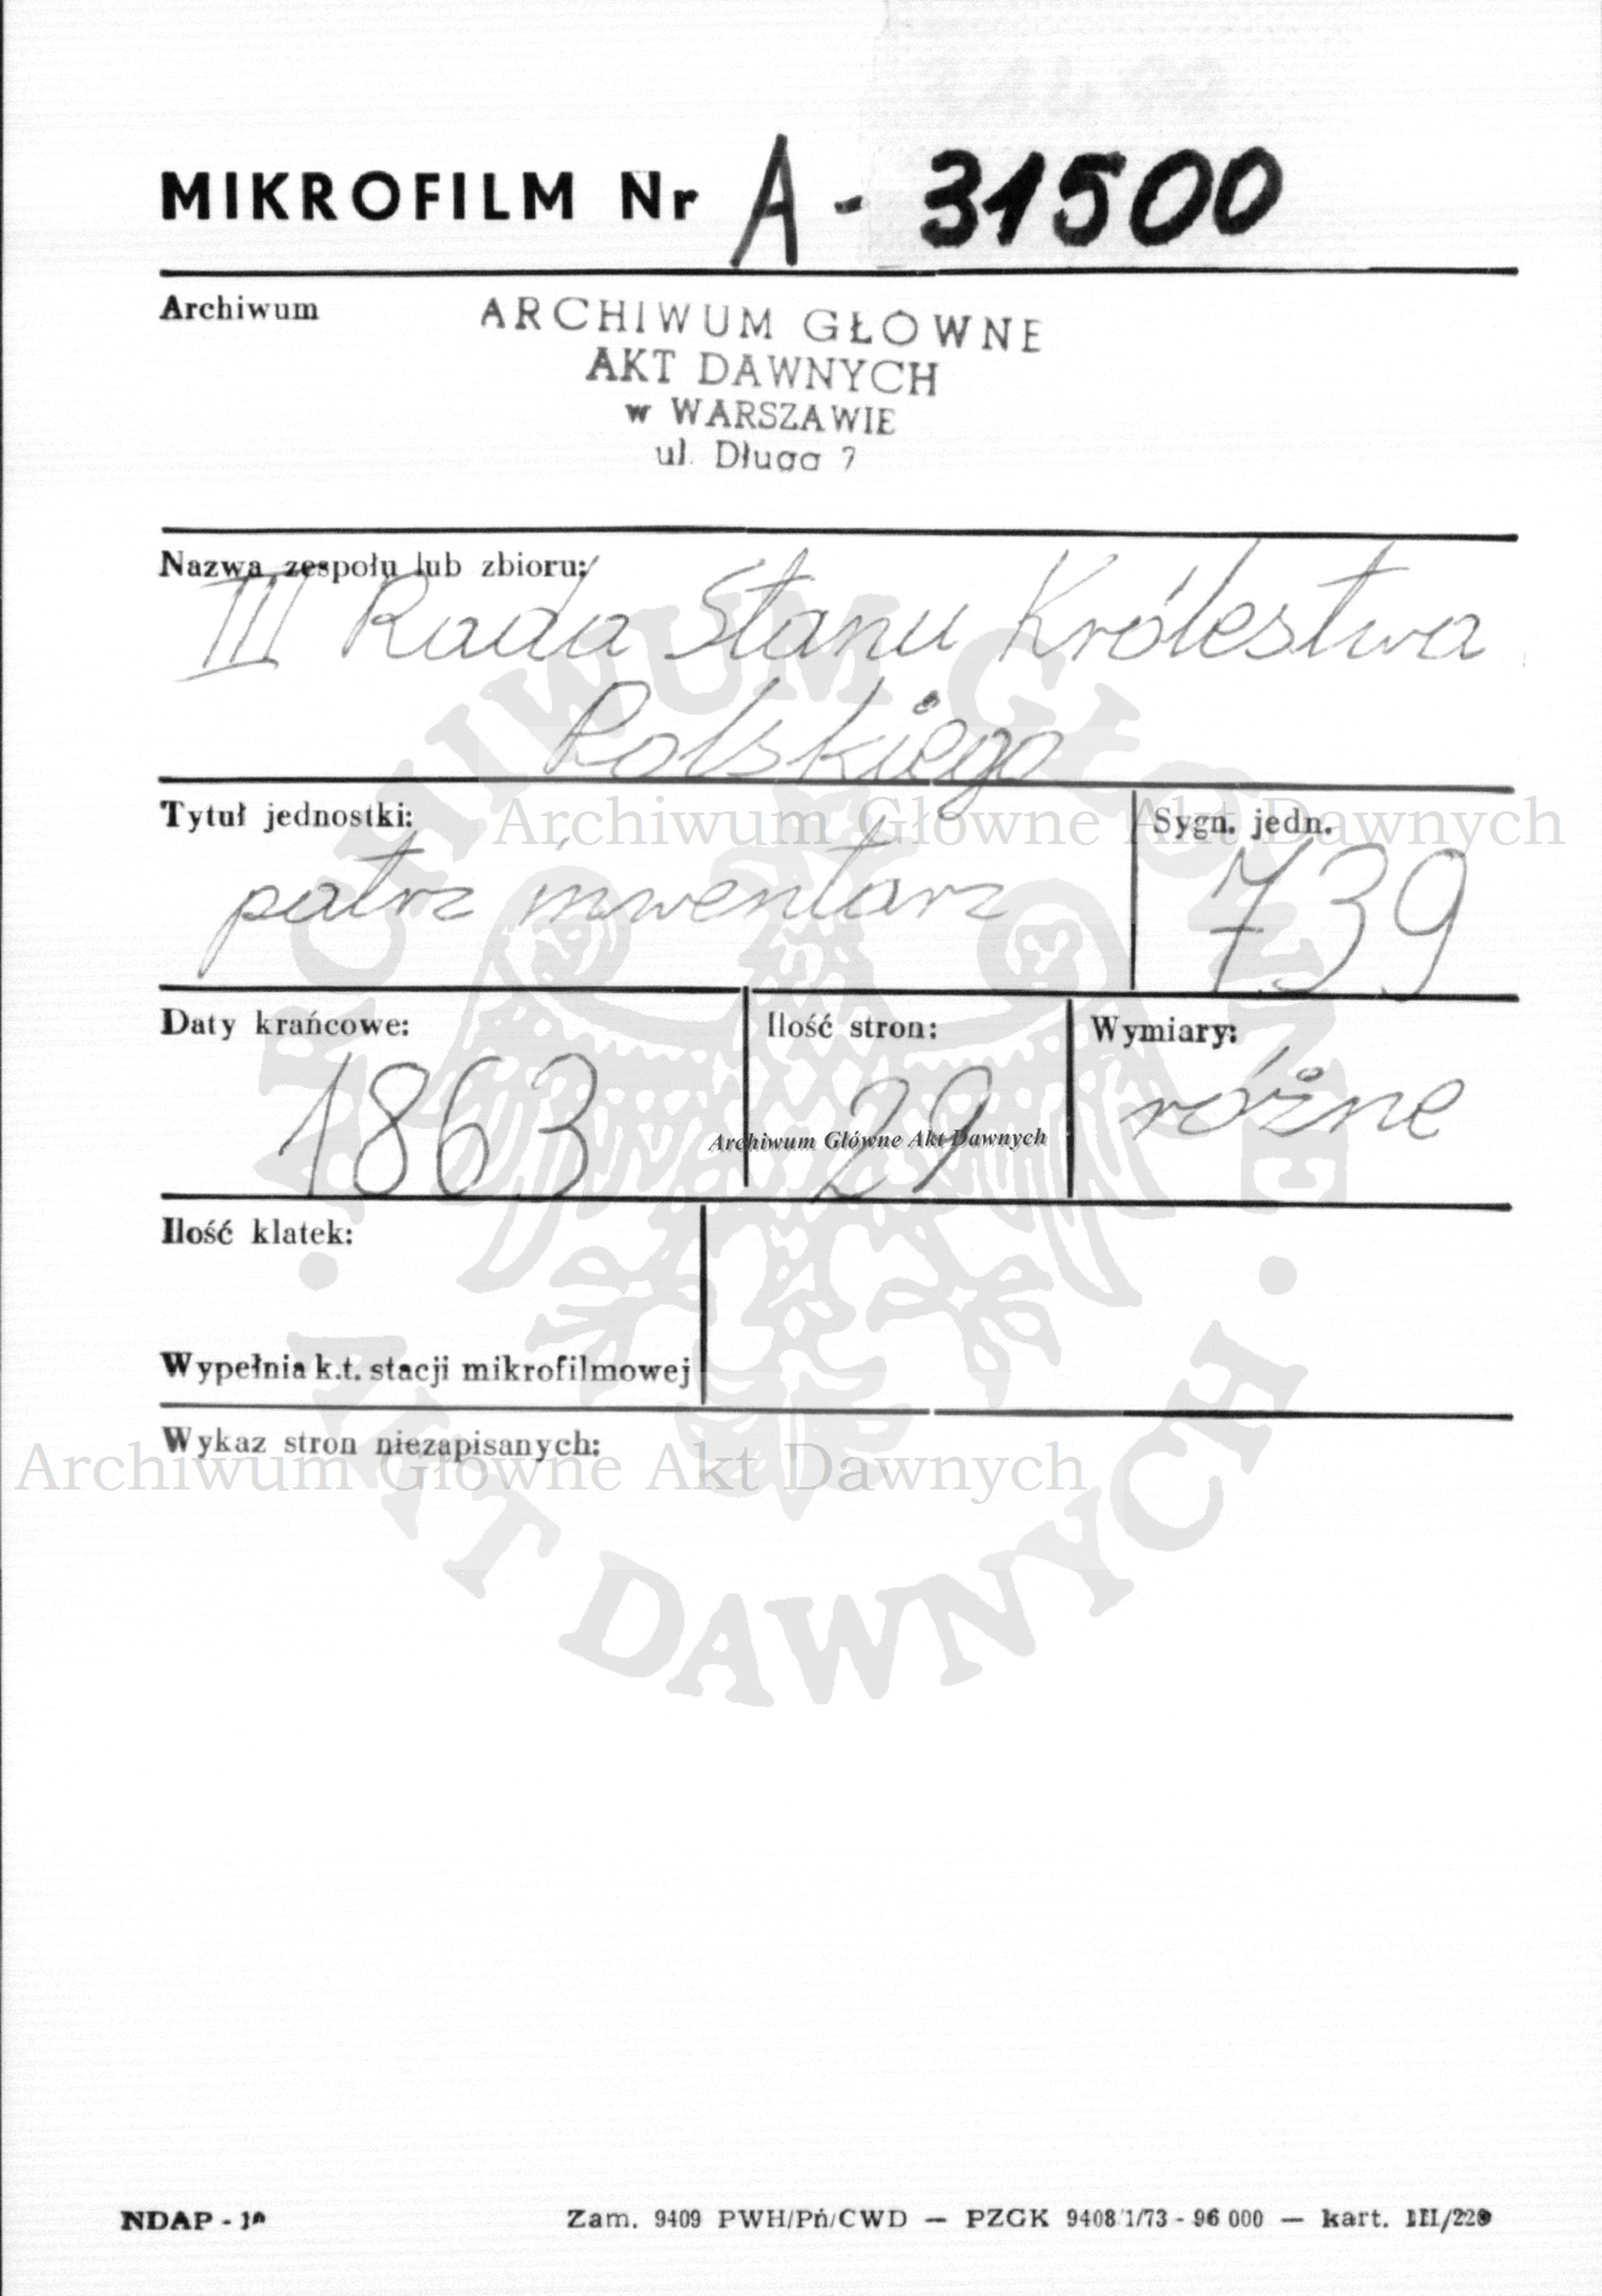 MIKROFILM Nr A - 31500
Archiwum
ARCHIWUM GŁÓWNE
AKT DAWNYCH
w WARSZAWIE
ul. Długa 7
Nazwa zespołu lub zbioru:
III Rada Stanu Królestwa
Polskiego
Tytuł jednostki:
patrz inwentarz
Sygn. jedn.
739
Archiwum Główne Akt Dawnych
Daty krańcowe:
1863
Ilość stron:
29
Wymiary:
różne
Archiwum Główne Akt Dawnych
Ilość klatek:
Wypełnia k.t. stacji mikrofilmowej
Wykaz stron niezapisanych:
Archiwum Główne Akt Dawnych
ARCHIWUM GŁÓWNE
AKT DAWNYCH
NDAP -
Zam. 9409 PWH/Pń/CWD — PZGK 9408/1/73 - 96 000 — kart. III/220